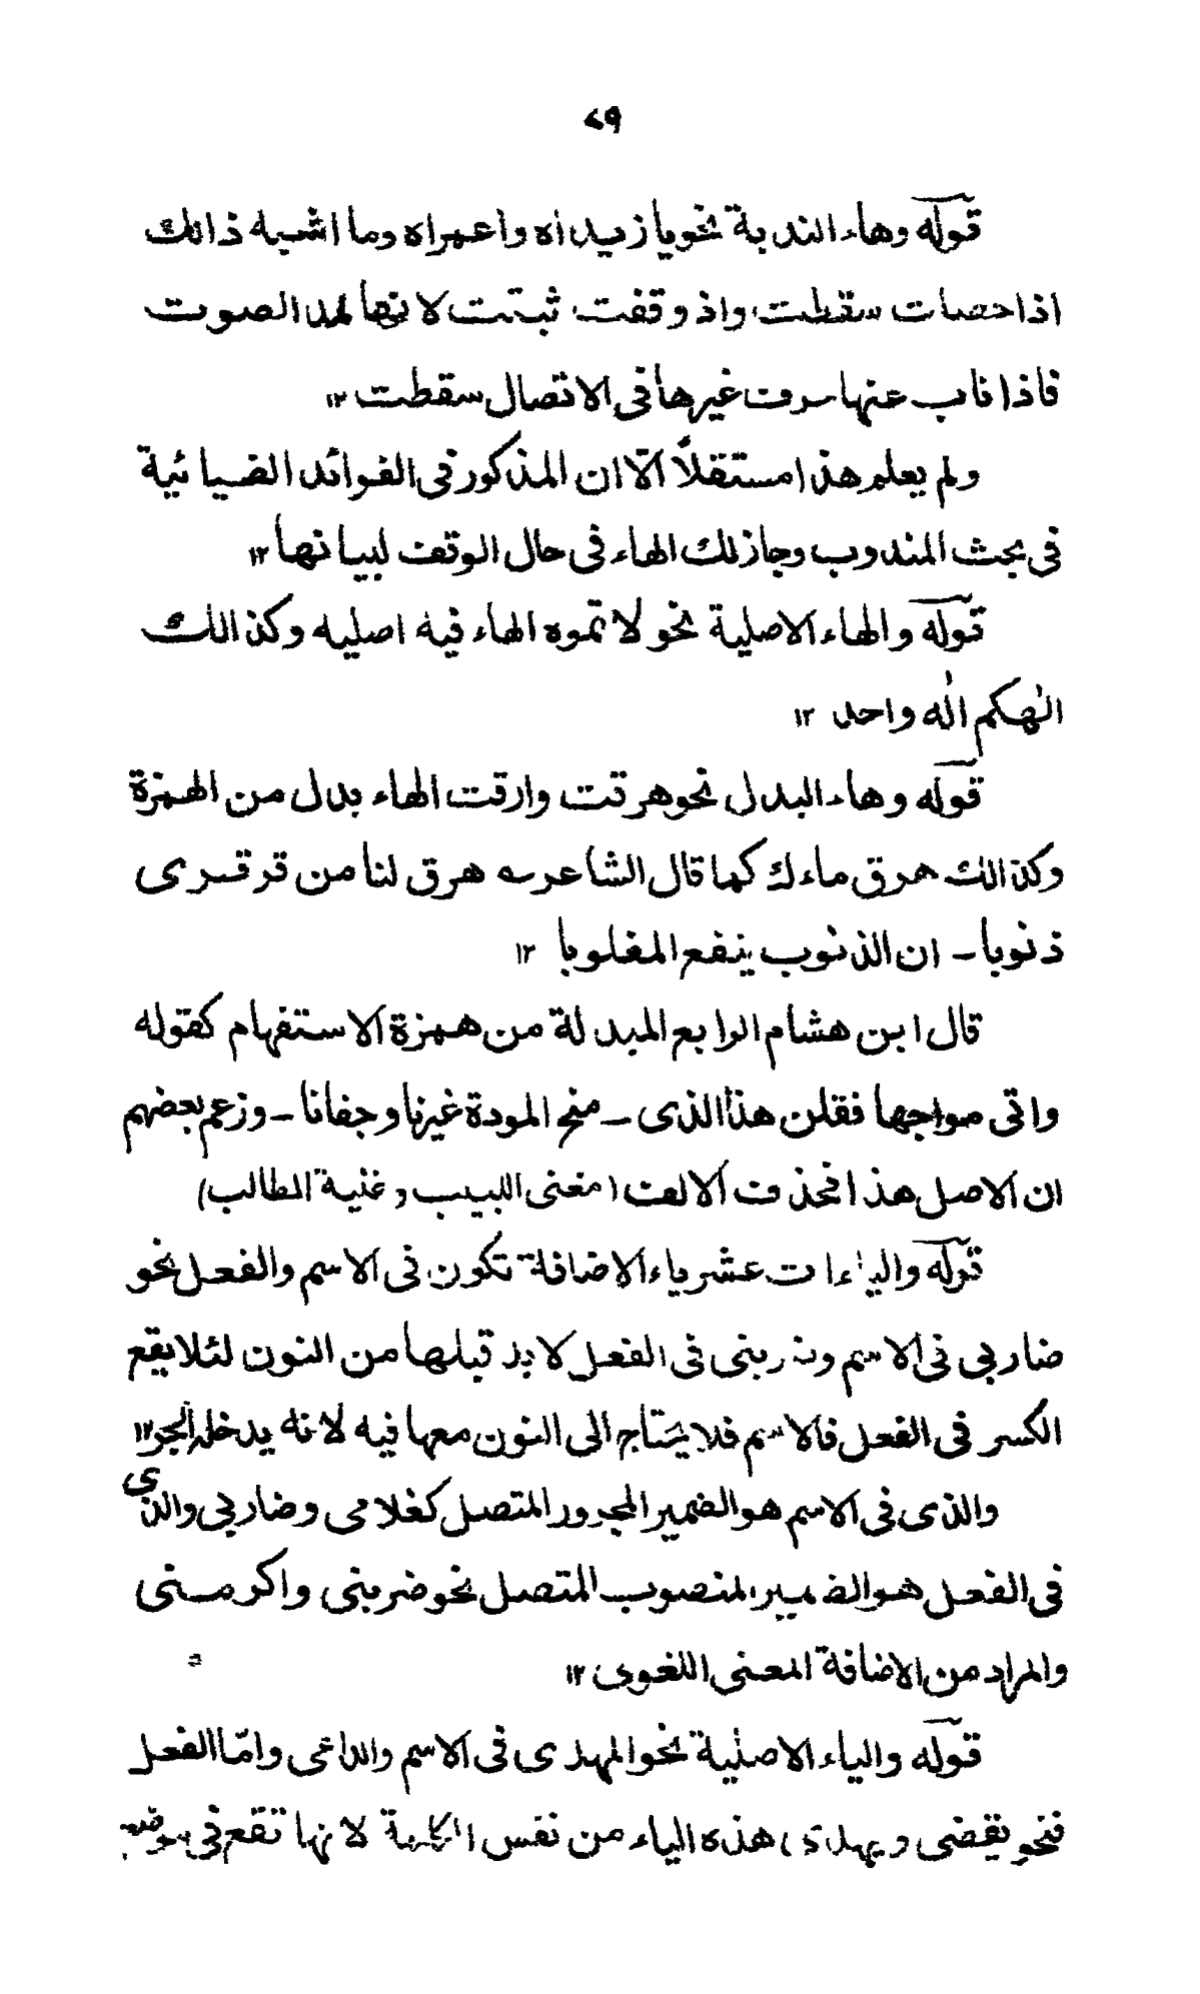 ٤٩
قوله وهاء الندبة نحو يا زيداه واعمراه وما اشبه ذالك
اذا حصلت سقطت واذ وقفت ثبتت لانها لمد الصوت
فاذا ناب عنها حرف غيرها فى الاتصال سقطت ١٢
ولم يعلم هذا مستقلاً الّا ان المذكور فى الفوائد الضيائية
فى بحث المندوب وجاز لك الهاء فى حال الوقف لبيانها ١٢
قوله والهاء الاصلية نحو لا تموه الهاء فيه اصليه وكذالك
الٰهكم الٰه واحد ١٢
قوله وهاء البدل نحو هرقت وارقت الهاء بدل من الهمزة
وكذالك هرق ماءك كما قال الشاعر ؎ هرق لنا من قرقرى
ذنوبا ـ ان الذنوب ينفع المغلوبا ١٢
قال ابن هشام الرابع المبدلة من همزة الاستفهام كقوله
واتى صواحبها فقلن هذا الذى ـ منح المودة غيرنا وجفانا ـ وزعم بعضهم
ان الاصل هذا فحذفت الالف (مغنى اللبيب وغنية المطالب)
قوله والياءات عشر ياء الاضافة تكون فى الاسم والفعل نحو
ضاربى فى الاسم وضربنى فى الفعل لابد قبلها من النون لئلا يقع
الكسر فى الفعل فالاسم فلا يحتاج الى النون معها فيه لانه يدخله الجر ١٢
والذى فى الاسم هو الضمير المجرور المتصل كغلامى وضاربى والذى
فى الفعل هو الضمير المنصوب المتصل نحو ضربنى واكرمنى
والمراد من الاضافة المعنى اللغوى ١٢
قوله والياء الاصلية نحو المهدى فى الاسم والداعى وامّا الفعل
فنحو يقضى ويهدى هذه الياء من نفس الكلمة لانها تقع فى